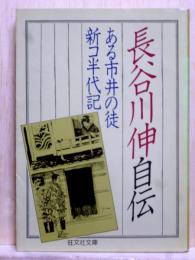 長谷川伸自伝
ある市井の徒
新コ半代記
旺文社文庫